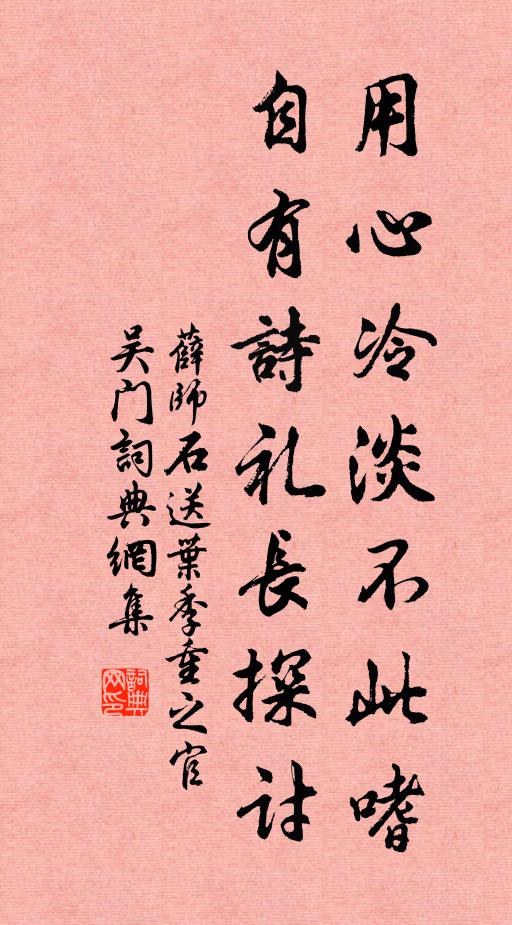 用心冷淡不此嗜
自有詩礼長探討
薛師石送葉季重之官
吴门詞典網集
詞典网印